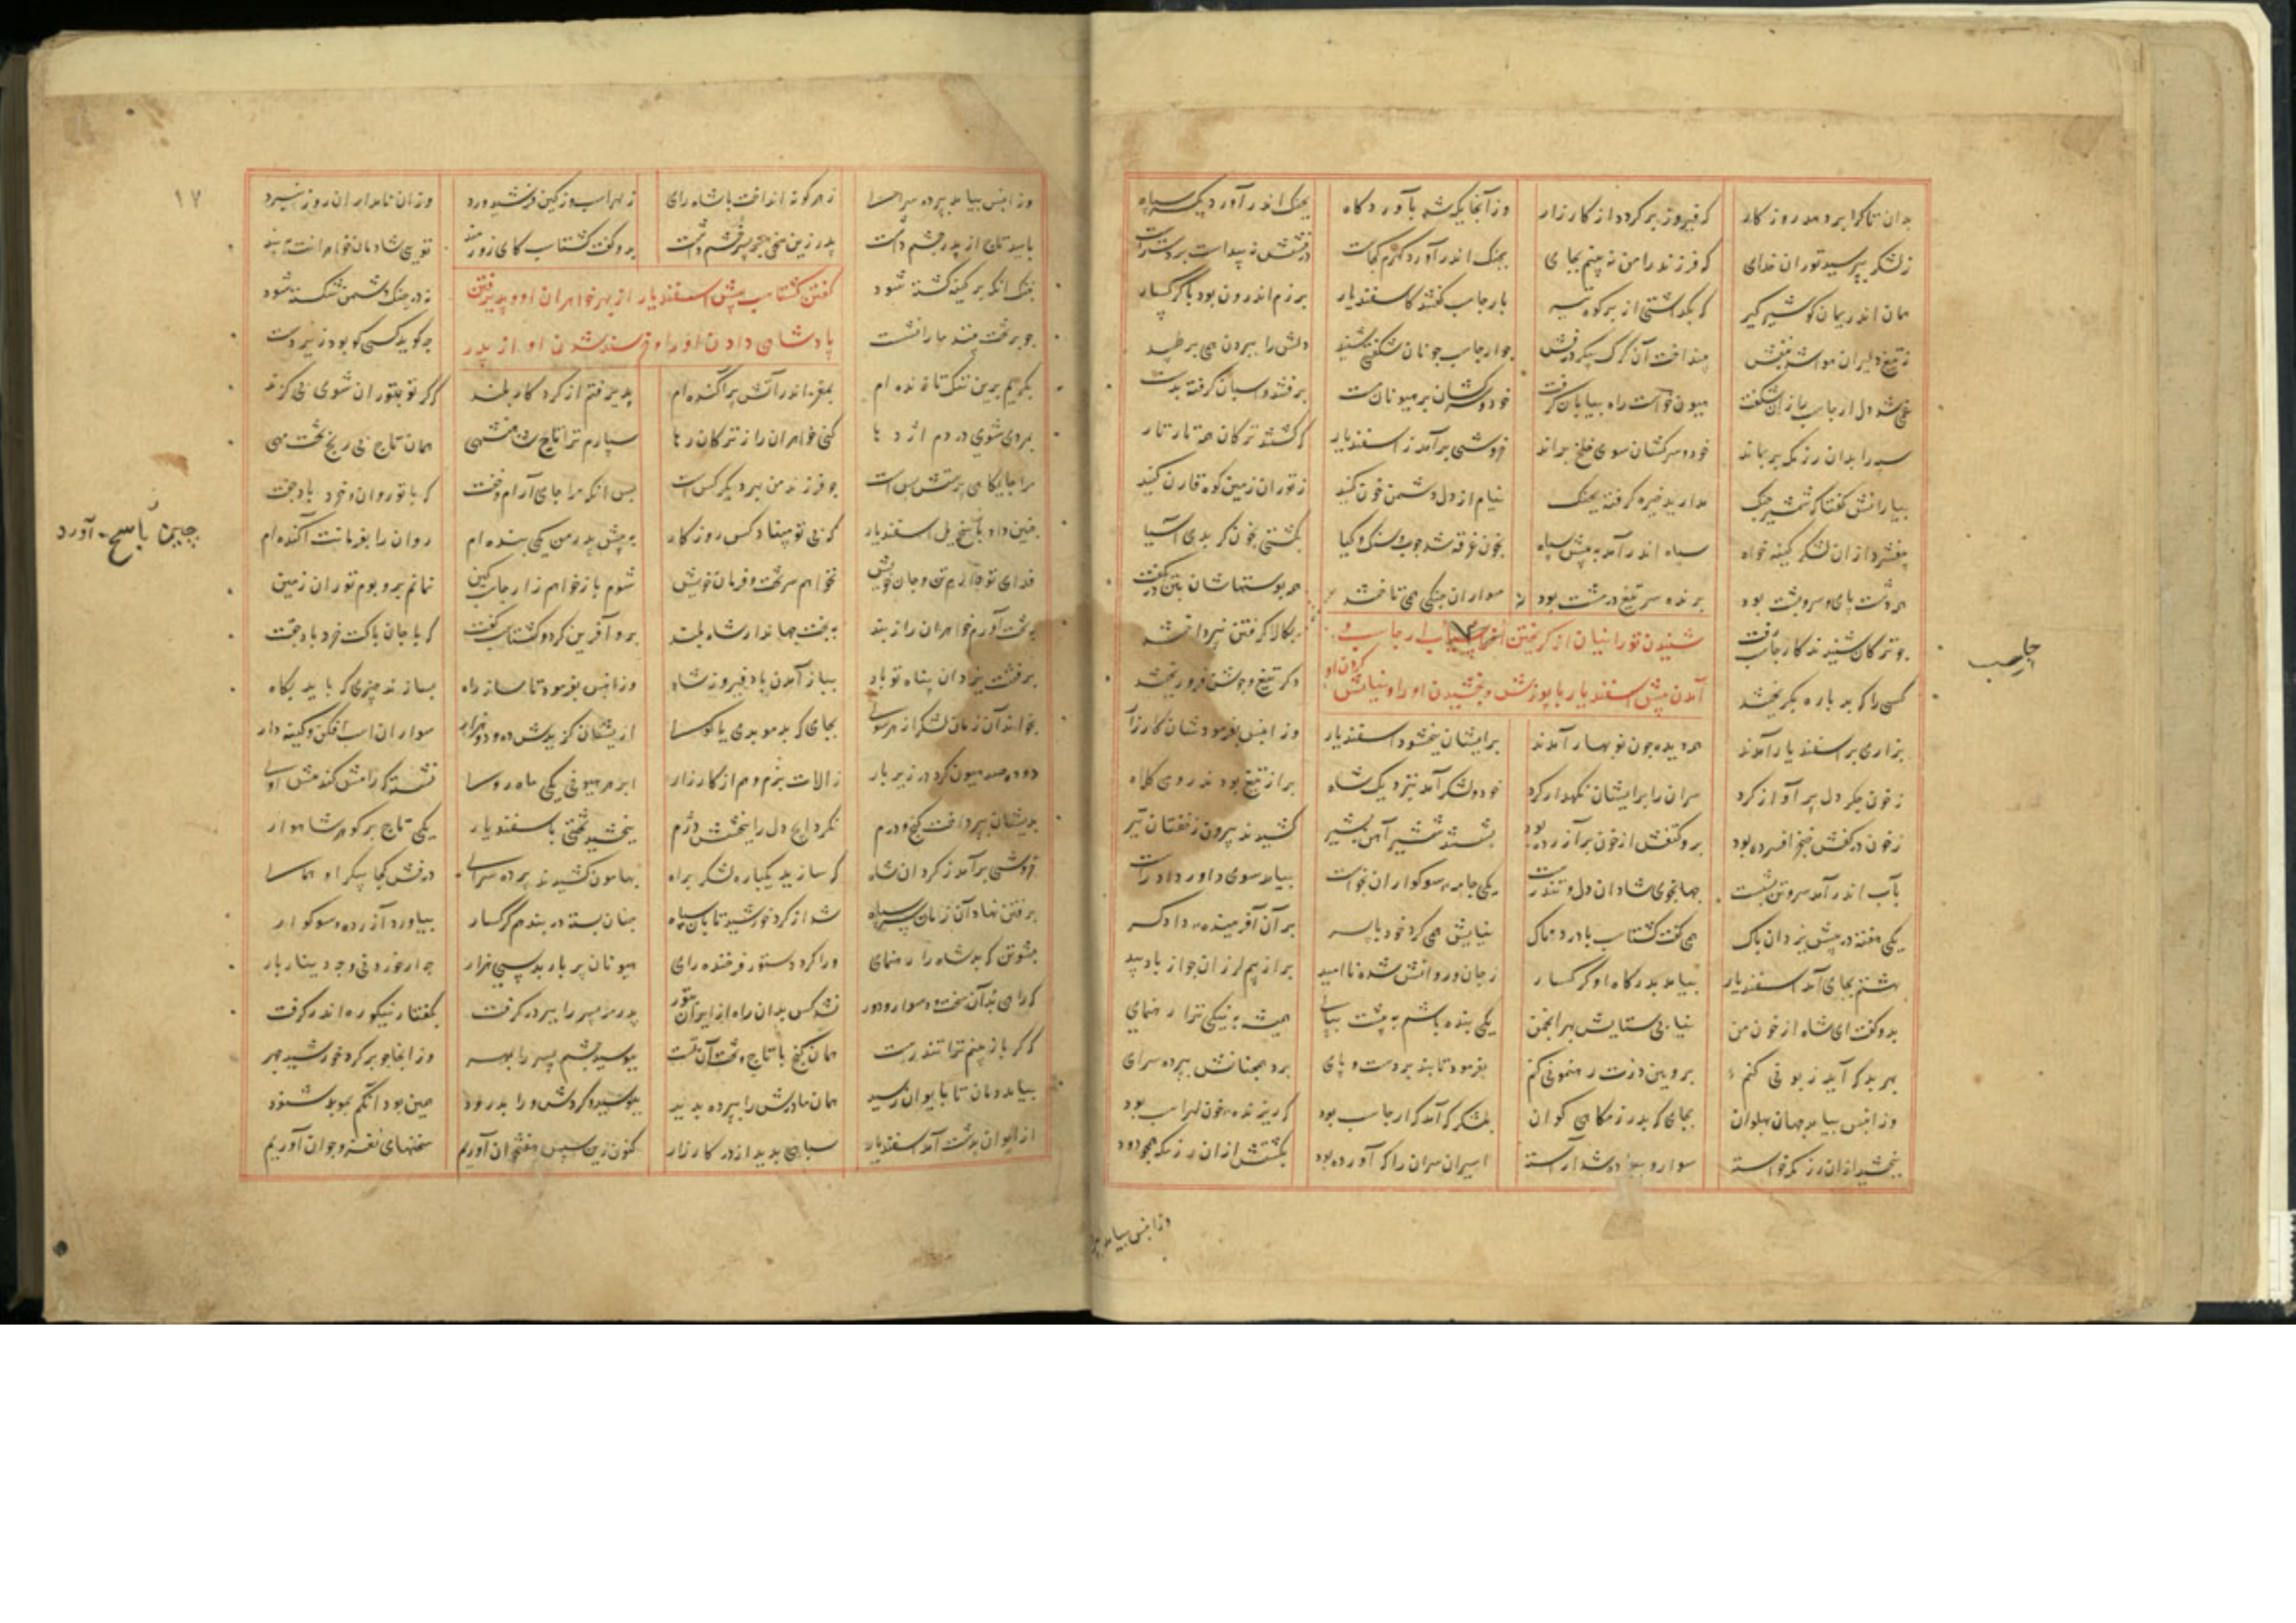 بدان تا کرا بردهد روزکار که فیروز برکردد از کارزار وز آنجایکه شد بآوردکاه بجنک اندر آورد یکسر سپاه
زلشکر بپرسید توران خدای که فرزند را من نه بینم بجای بجنک اندر آورد کهرم کجاست درفشش نه پیداست بر دست راست
همان اندریمان کو شیرکیر که بکذاشتی از بر کوه تیر بارجاسب کفتند کاسفندیار برزم اندرون بود با کرکسار
ز تیغ دلیران هوا شد بنفش بینداخت آن کرک پیکر درفش چو ارجاسب چونان شکفتی شنید دلش را ببردن همی برطپید
غمی شد دل ارجاسب را زان شکفت هیون خواست راه بیابان کرفت خود و سرکشان بر هیونان مست برفتند و اسبان کرفته بدست
سپه را بدان رزمکه بر بماند خود و سرکشان سوی خلخ براند خروشی برآمد ز اسفندیار که کشتند ترکان همه تار تار
بیارانش کفتا که شمشیر جنک مدارید خیره کرفته بچنک نیام از دل دشمن خون کنید ز توران زمین کوه قارن کنید
بیفشرد ازان لشکر کینه خواه سپاه اندر آمد به پیش سپاه بخون غرقه شد چوب و سنک و کیا بکشتی بخون کر بدی آسیا
همه دشت پای و سر و پشت بود برنده سر تیغ در مشت بود سواران جنکی همی تاختند
چو ترکان شنیدند کارجاسب رفت همه پوستهاشان بتن در
شنیدن تورانیان از کریختن ارجاسب و بکالا کرفتن نپرداختند
کسی را که بد باره بکریختند دکر تیغ و جوشن فرو ریختند
آمدن پیش اسفندیار با پوزش و بخشیدن او را و نیایش کردن او
ارجاسب
بزاری بر اسفندیار آمدند همه دیده چون نوبهار آمدند بر ایشان ببخشود اسفندیار وز آنپس بفرمودشان کارزار
زخون جکر دل پر آواز کرد سران را بر ایشان نکهدار کرد خود و لشکر آمد بنزدیک شاه پر از تیغ بودند روی کلاه
زخون در کفش خنجر افسرده بود بر و کتفش از خون پر آزرده بود بشستند شمشیر آهن بشیر کشیدند بیرون ز خفتان تیر
بآب اندر آمد سر و تن بشست جهانجوی شادان دل و تندرست یکی جامه سوکواران بخواست بیامد سوی داور داد راست
یکی هفته در پیش یزدان پاک همی کفت کشتاسب با درد و باک نیایش همی کرد خود با پسر بر آن آفریننده دادکر
بهشتم بجای آمد اسفندیار بیامد بدرکاه او کرکسار زجان و روانش شده ناامید پر از بیم لرزان چو از باد بید
بدو کفت ای شاه از خون من نیابی ستایش بهر انجمن یکی بنده باشم به پیشت بپای همیشه به نیکی ترا رهنمای
بهر بد که آید زبونی کنم برویین دزت رهنمونی کنم بفرمود تا بند بر دست و پای برد همچنانش بپرده سرای
وز آنپس بیامد جهان پهلوان بجای که بد رزمکاهی کوان بلشکر که آمد که ارجاسب بود که ریزنده خون لهراسب بود
ببخشید ازان رزمکه خواسته سوار و پیاده شد آراسته اسیران سران را که آورده بود بکشتش ازان رزمکه هر که بود
وز آنپس بیامد
۱۷
وز آنپس بیامد بپرده سرا ز هر کونه انداخت با شاه رای ز لهراسب وز کین فرشیدورد وزان نامداران روز نبرد
باسد تاج از پدر چشم داشت پدر زین سخن بر پسر خشم داشت بدو کفت کشتاسب کای زورمند تویی شادمان خواهرانت به بند
کفتن کشتاسب پیش اسفندیار از بهر خواهران او و پذیرفتن
خنک آنکه بر کینه کشته شود نه در جنک دشمن شکسته شود
پادشاهی دادن او را و خرسند شدن او از پدر
چو بر تخت بیند ما را نشست چه کوید کسی کو بود زیردست
بکریم برین ننک تا زنده ام بمغز اندر آتش پراکنده ام پذیرفتم از کردکار بلند که کر تو بتوران شوی بی کزند
بمردی شوی در دم اژدها کنی خواهران را ز ترکان رها سپارم ترا تاج شاهنشهی همان تاج بی رنج تخت مهی
مرا جایکاه پرستش بس است چو فرزند من بهر دیکر کس است پس آنکه مرا جای آرام و تخت که با تو روان و خرد باد جفت
چنین داد پاسخ یل اسفندیار که بی تو مبیناد کس روزکار به پیش پدر من یکی بنده ام روان را بفرمانت آکنده ام
چنین پاسخ آورد
فدای تو دارم تن و جان خویش نخواهم سر تخت و فرمان خویش شوم باز خواهم ز ارجاسب کین نمانم بر و بوم توران زمین
به تخت آورم خواهران را ز بند به بخت جهاندار شاه بلند برو آفرین کرد و کشتاسب کفت که با جان پاکت خرد باد جفت
برفتنت یزدان پناه تو باد بباز آمدن باد فیروز شاه وز آنپس بفرمود تا ساز راه بسازند چیزی که باید بکاه
بخواند آن زمان لشکر از هر سوئی بجای که بد موبدی یا کوی از ایشان کزیدش ده و دو هزار سواران اسب افکن و کینه دار
زآلات بزم و هم از کارزار ابر هر هیونی یکی ماه رو نشسته که رامش کند پیش او
بدیشان بپرداخت کنج و درم نکرد ایچ دل را ببخشش دژم ببخشید تختی باسفندیار یکی تاج پر کوهر شاهوار
خروشی برآمد ز کردان شاه که سازید یکباره لشکر براه بهامون کشیدند پرده سرای درفش کجا پیکر او همای
برفتن نهاد آن زمان سر سپاه شد از کرد خورشید تابان سیاه چنان بسته در بند هم کرکسار بیاورد آزرده و سوکوار
بشوتن که بد شاه را رهنمای ورا کرد دستور فرخنده رای هیونان پر بار بد سیهزار
که راهی بد آن سخت و دشوار و دور نشد کس بدان راه از ایران پدر مر پسر را ببر در کرفت بکفتار نیکو ره اندر کرفت
که کر باز بینم ترا تندرست همان کنج با تاج و تخت آن تست ببوسید چشم پسر را بمهر وز آنجا چو بر کرد خورشید چهر
بیامد دمان تا بایوان رسید همان مادرش را بپرده بدید ببوسید و کردش ورا بدرود همین بود آنکم بموبد شنود
از ایوان بدشت آمد اسفندیار سپاهی بدید از در کارزار کنون زین سپس هفتخوان آوریم سخنهای نغز و جوان آوریم